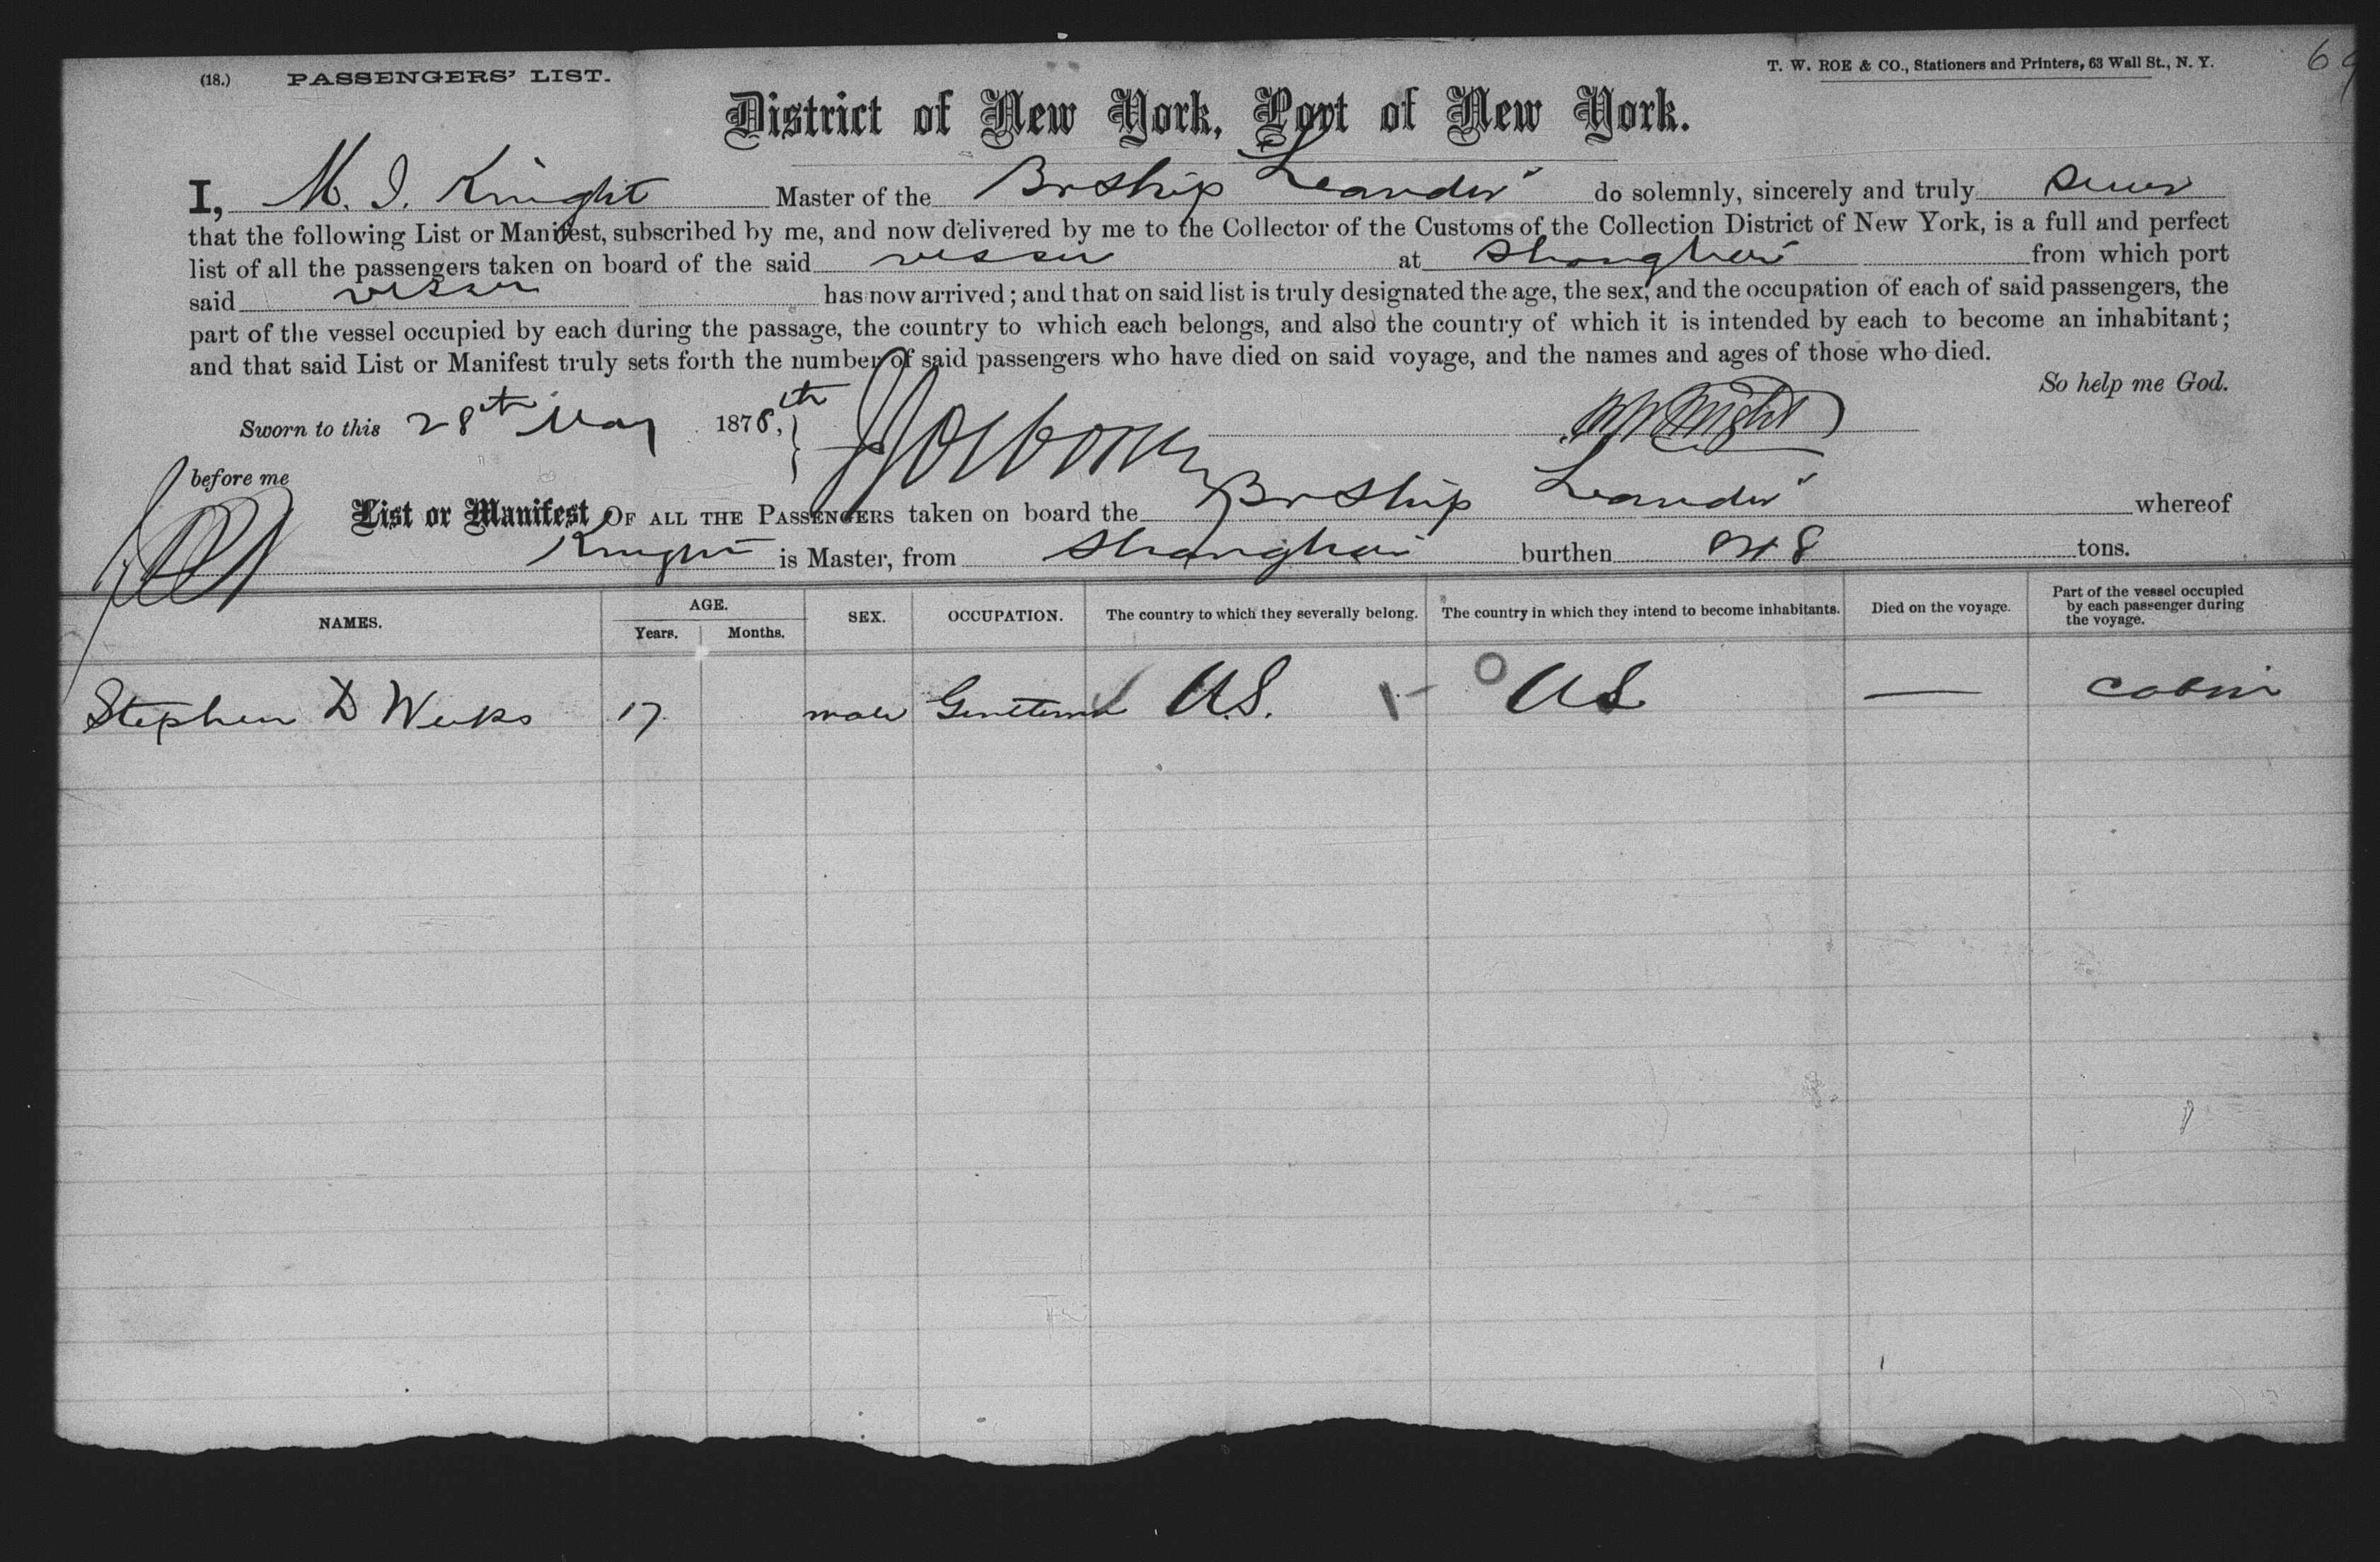 (18.) PASSENGERS' LIST.
T. W. ROE & CO., Stationers and Printers, 63 Wall St., N. Y.
69
District of New York, Port of New York.
I, M. I. Knight Master of the Br Ship Leander do solemnly, sincerely and truly swear
that the following List or Manifest, subscribed by me, and now delivered by me to the Collector of the Customs of the Collection District of New York, is a full and perfect
list of all the passengers taken on board of the said vessel at Shanghai from which port
said vessel has now arrived; and that on said list is truly designated the age, the sex, and the occupation of each of said passengers, the
part of the vessel occupied by each during the passage, the country to which each belongs, and also the country of which it is intended by each to become an inhabitant;
and that said List or Manifest truly sets forth the number of said passengers who have died on said voyage, and the names and ages of those who died.
So help me God.
Sworn to this 28th May 1878, Knight
before me
List or Manifest OF ALL THE PASSENGERS taken on board the Br Ship Leander whereof
Knight is Master, from Shanghai burthen tons.
NAMES. AGE. Years. Months. SEX. OCCUPATION. The country to which they severally belong. The country in which they intend to become inhabitants. Died on the voyage. Part of the vessel occupied by each passenger during the voyage.
Stephen D Weeks 17 male Gentleman U.S. 1 US — Cabin